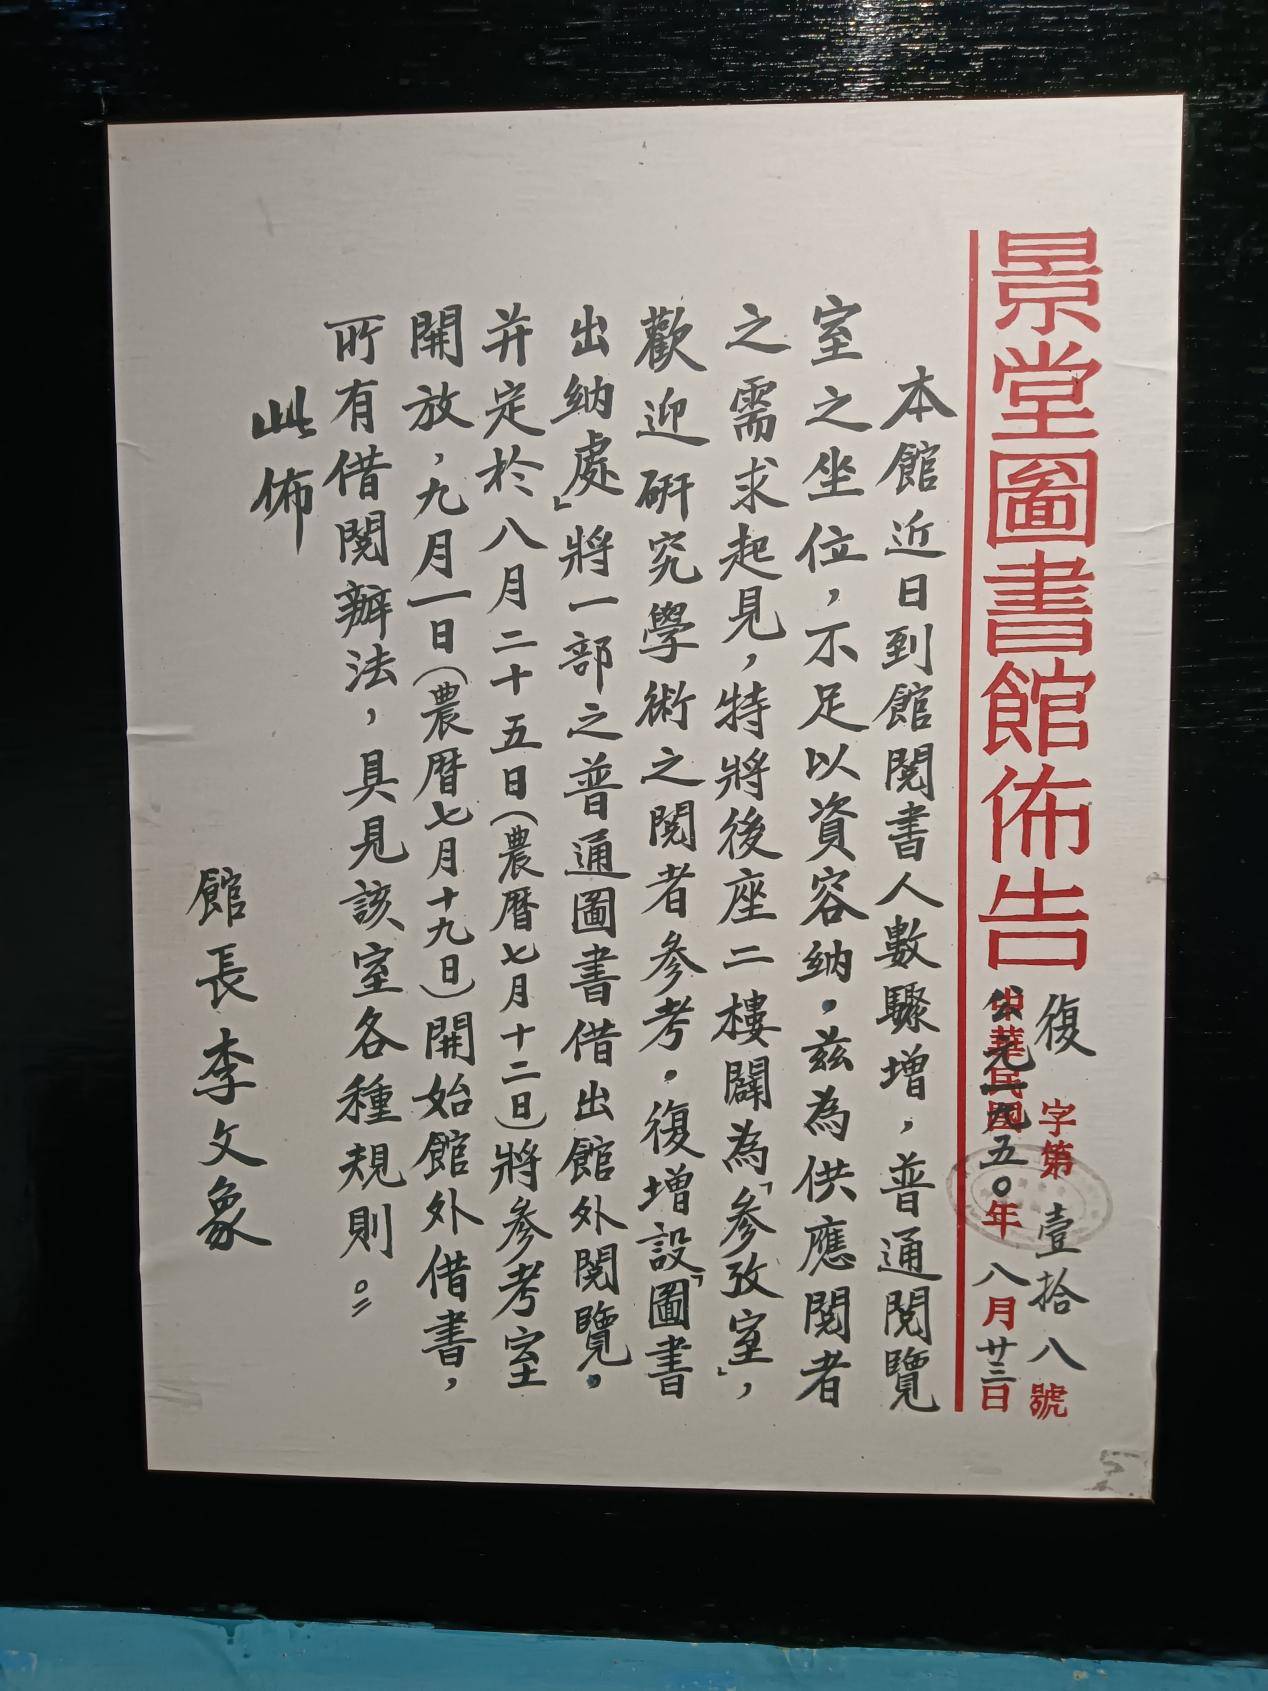 景堂圖書館佈告
復字第壹拾八號
公元一九五〇年八月廿三日
本館近日到館閱書人數驟增，普通閱覽
室之坐位，不足以資容納。茲為供應閱者
之需求起見，特將後座二樓闢為「參攷室」，
歡迎研究學術之閱者參考。復增設「圖書
出納處」將一部之普通圖書借出館外閱覽。
并定於八月二十五日(農曆七月十二日)將參考室
開放，九月一日(農曆七月十九日)開始館外借書，
所有借閱辦法，具見該室各種規則。
此佈
館長李文象